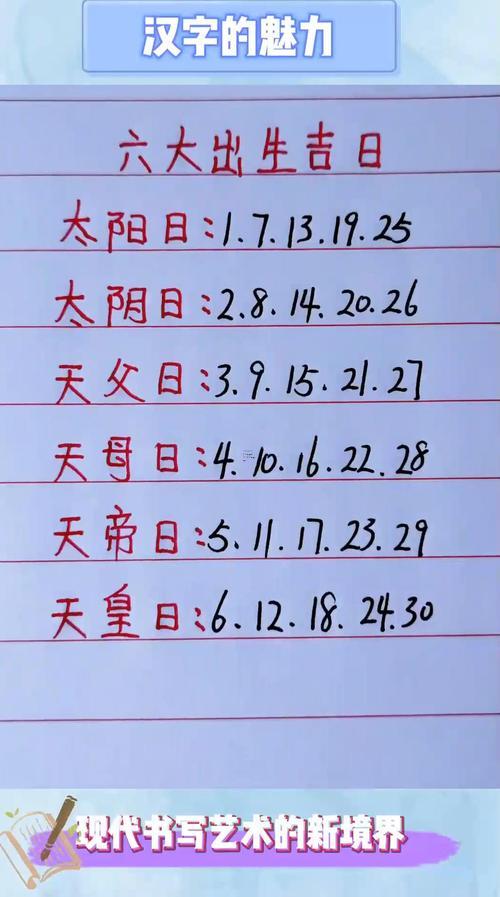 汉字的魅力
六大出生吉日
太阳日:1.7.13.19.25
太阴日:2.8.14.20.26
天父日:3.9.15.21.27
天母日:4.10.16.22.28
天帝日:5.11.17.23.29
天皇日:6.12.18.24.30
现代书写艺术的新境界